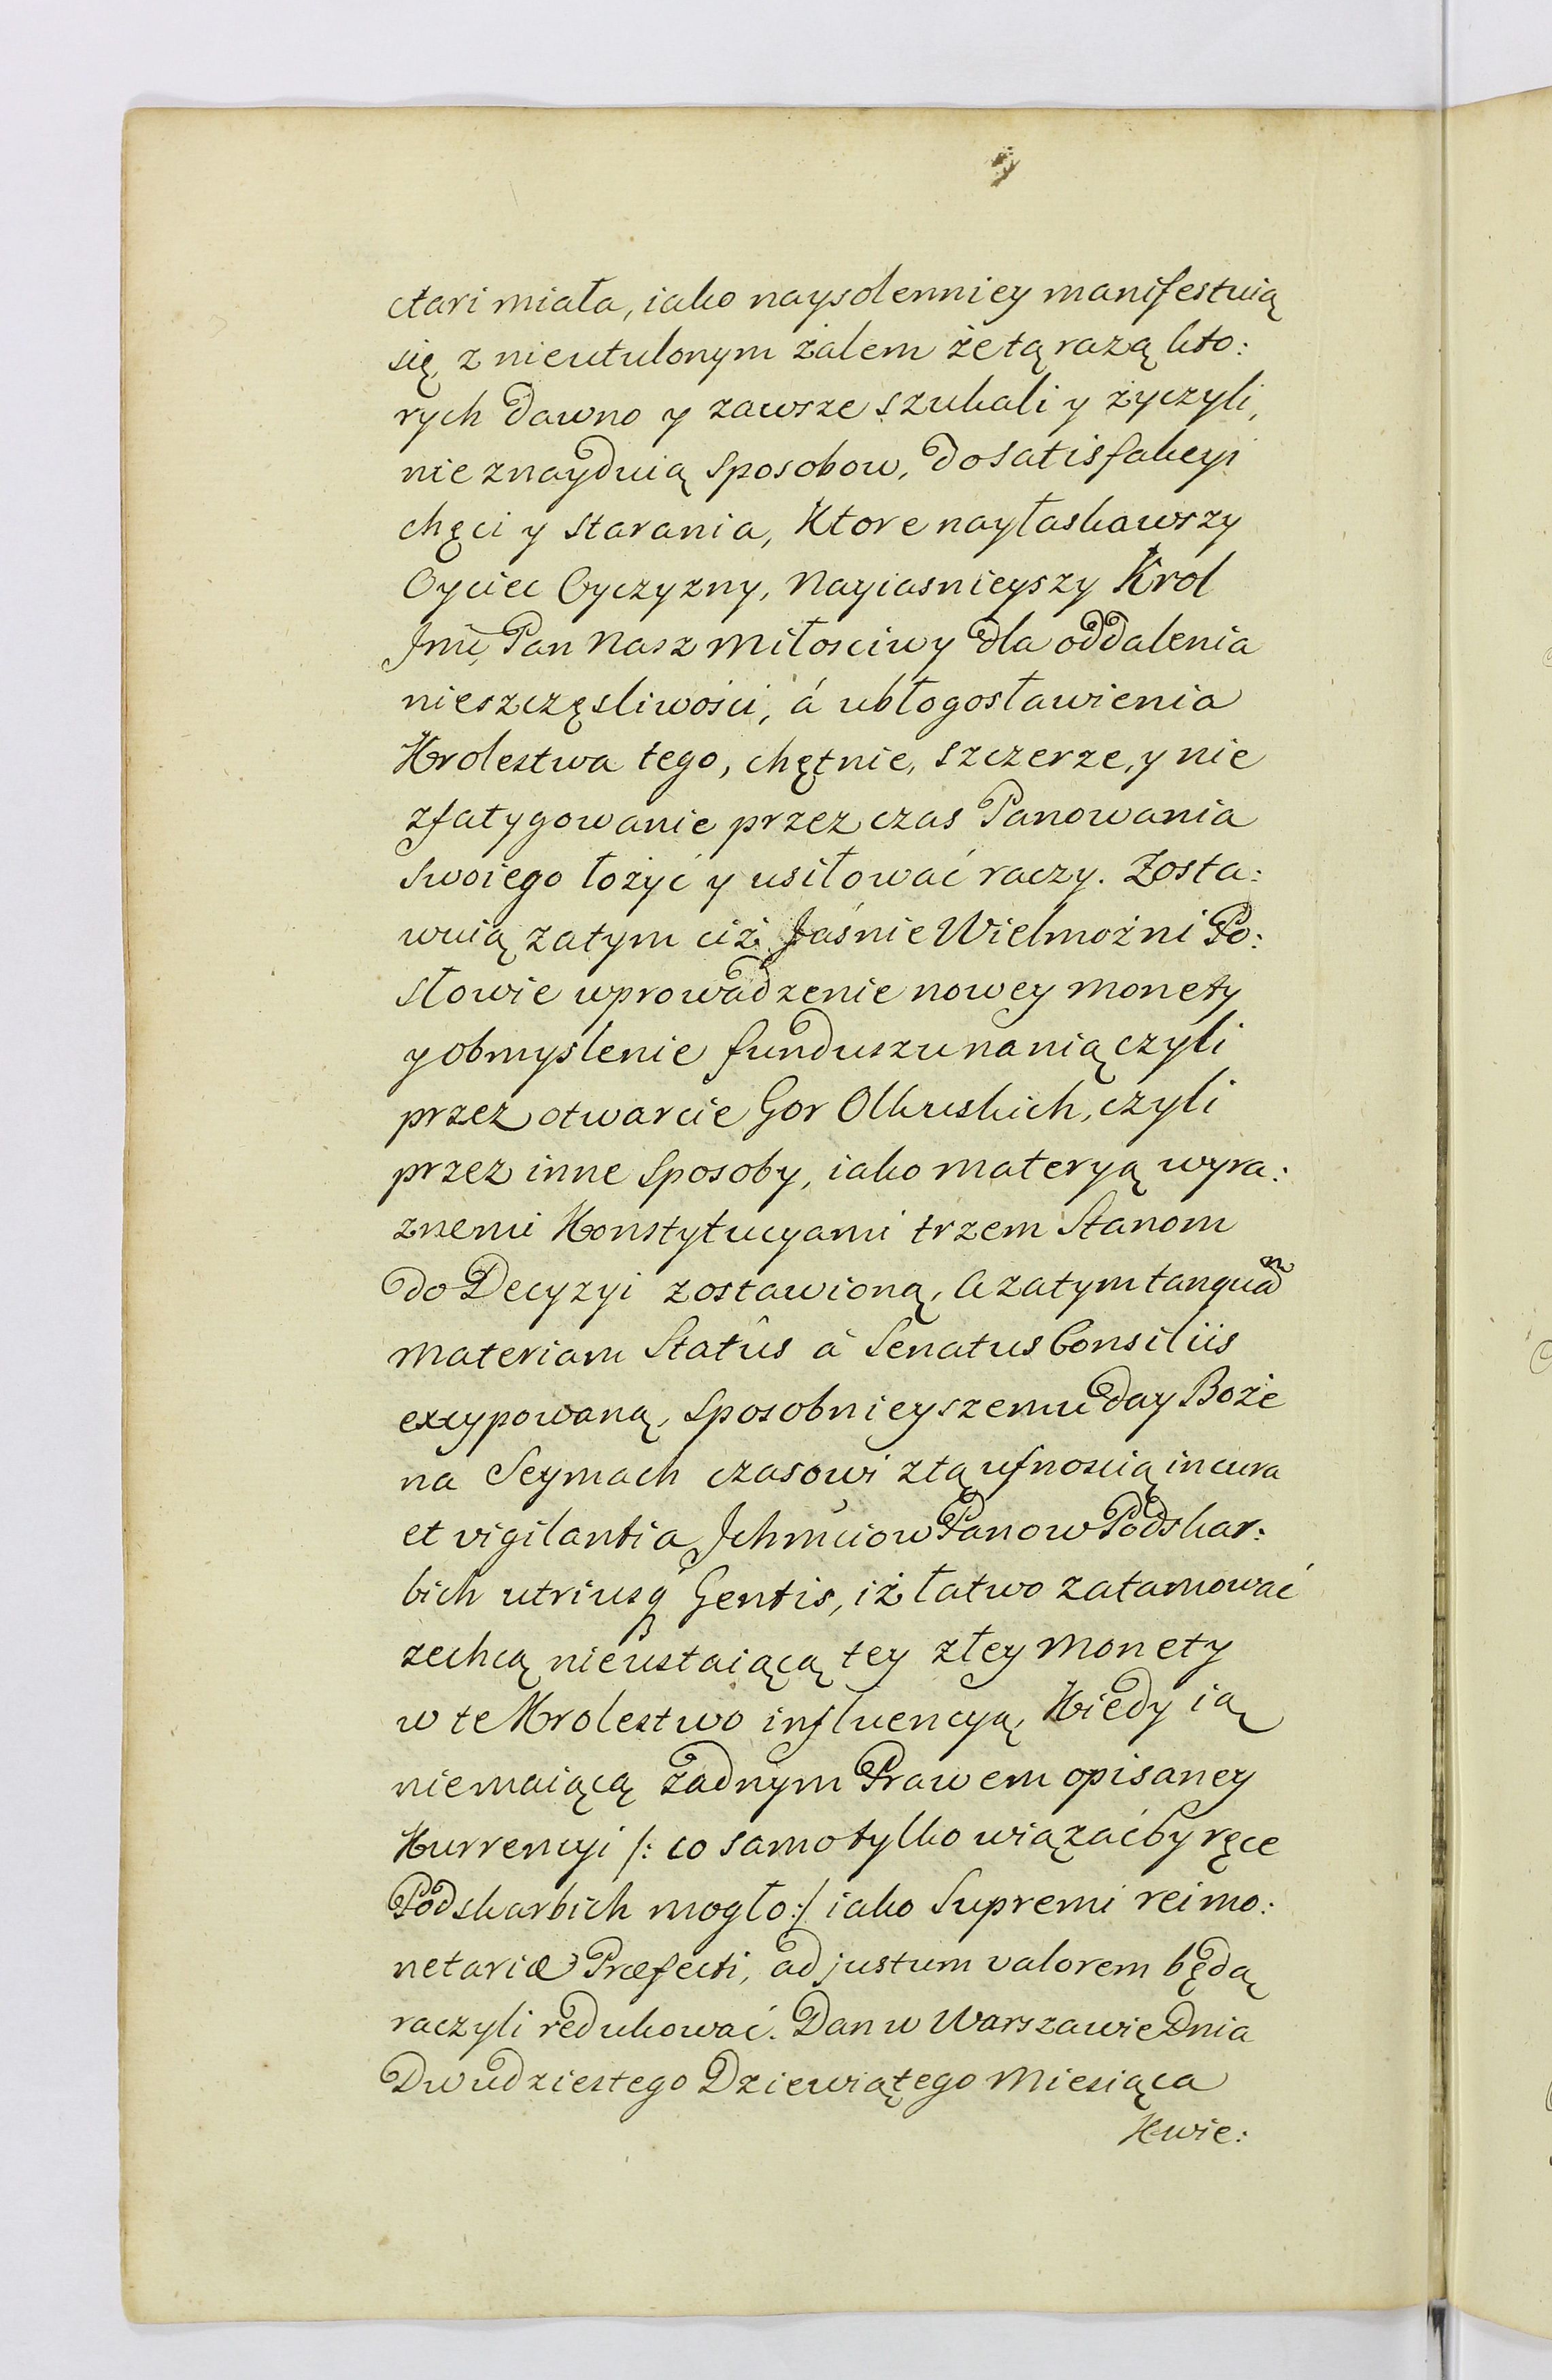 ctari miała, iako naysolenniey manifestuią
się z nieutulonym żalem że tą razą kto:
rych dawno y zawsze szukali y życzyli,
nie znayduią sposobow, do satisfakcyi
chęci y starania, Ktore nayłaskawszy
Oyciec Oyczyzny, Nayiasnieyszy Krol
Jmć, Pan Nasz Miłosciwy dla oddalenia
nieszczęsliwości, á ubłogosławienia
Krolestwa tego, chętnie, szczerze, y nie
zfatygowanie przez czas Panowania
Swoiego łożyć y usiłować raczy. Zosta:
wuią zatym ciż Jaśnie Wielmożni Po:
słowie wprowadzenie nowey monety
y obmyslenie funduszu na nią czyli
przez otwarcie Gor Olkuskich, czyli
przez inne sposoby, iako materyą wyra:
znemi Konstytucyami trzem Stanom
do Decyzyi zostawioną, A zatym tanquam
materiam Statûs à Senatus Consiliis
excypowaną, sposobnieyszemu day Boże
na Seymach czasowi z tą ufnoscią in cura
et vigilantia Jchmciow Panow Podskar:
bich utriusq Gentis, iż łatwo zatamować
zechcą nieustaiącą tey złey monety
w te Krolestwo influencyą, Kiedy ią
niemaiącą żadnym Prawem opisaney
Kurrencyi /: co samo tylko wiązaćby ręce
Podskarbich mogło :/ iako Supremi rei mo:
netariæ Præfecti, ad justum valorem będą
raczyli redukować. Dan w Warszawie Dnia
Dwudziestego Dziewiątego Miesiąca
Kwie: